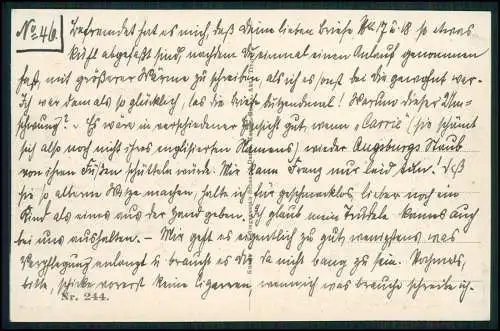 No 46.
Befremdet hat es mich, daß Deine lieben Briefe No. 17 u. 18 so etwas
kühl abgefaßt sind, nachdem Du einmal einen Anlauf genommen
hast, mit größerer Wärme zu schreiben, als ich es sonst bei Dir gewohnt war.
Ich war damals so glücklich, las die Briefe dutzendemal! Warum dieser Um-
schwung? - Es wäre in verschiedener Hinsicht gut, wenn "Carrie" (sie schämt
sich also noch nicht ihres englisierten Namens) wieder Augsburgs Staub
von ihren Füßen schütteln würde. Mir kann Franz nur leid tun! Daß
sie so alberne Witze machen, halte ich für geschmacklos, lieber noch ein
Kind als eines aus der Hand geben. Ich glaub mein Trudele kanns auch
bei uns aushalten. - Mir geht es eigentlich zu gut, wenigstens was
Verpflegung anlangt u. braucht es Dir da nicht bang zu sein. Nochmals,
bitte, schicke vorerst keine Cigarren, wenn ich was brauche schreibe ich.
Nr. 244.